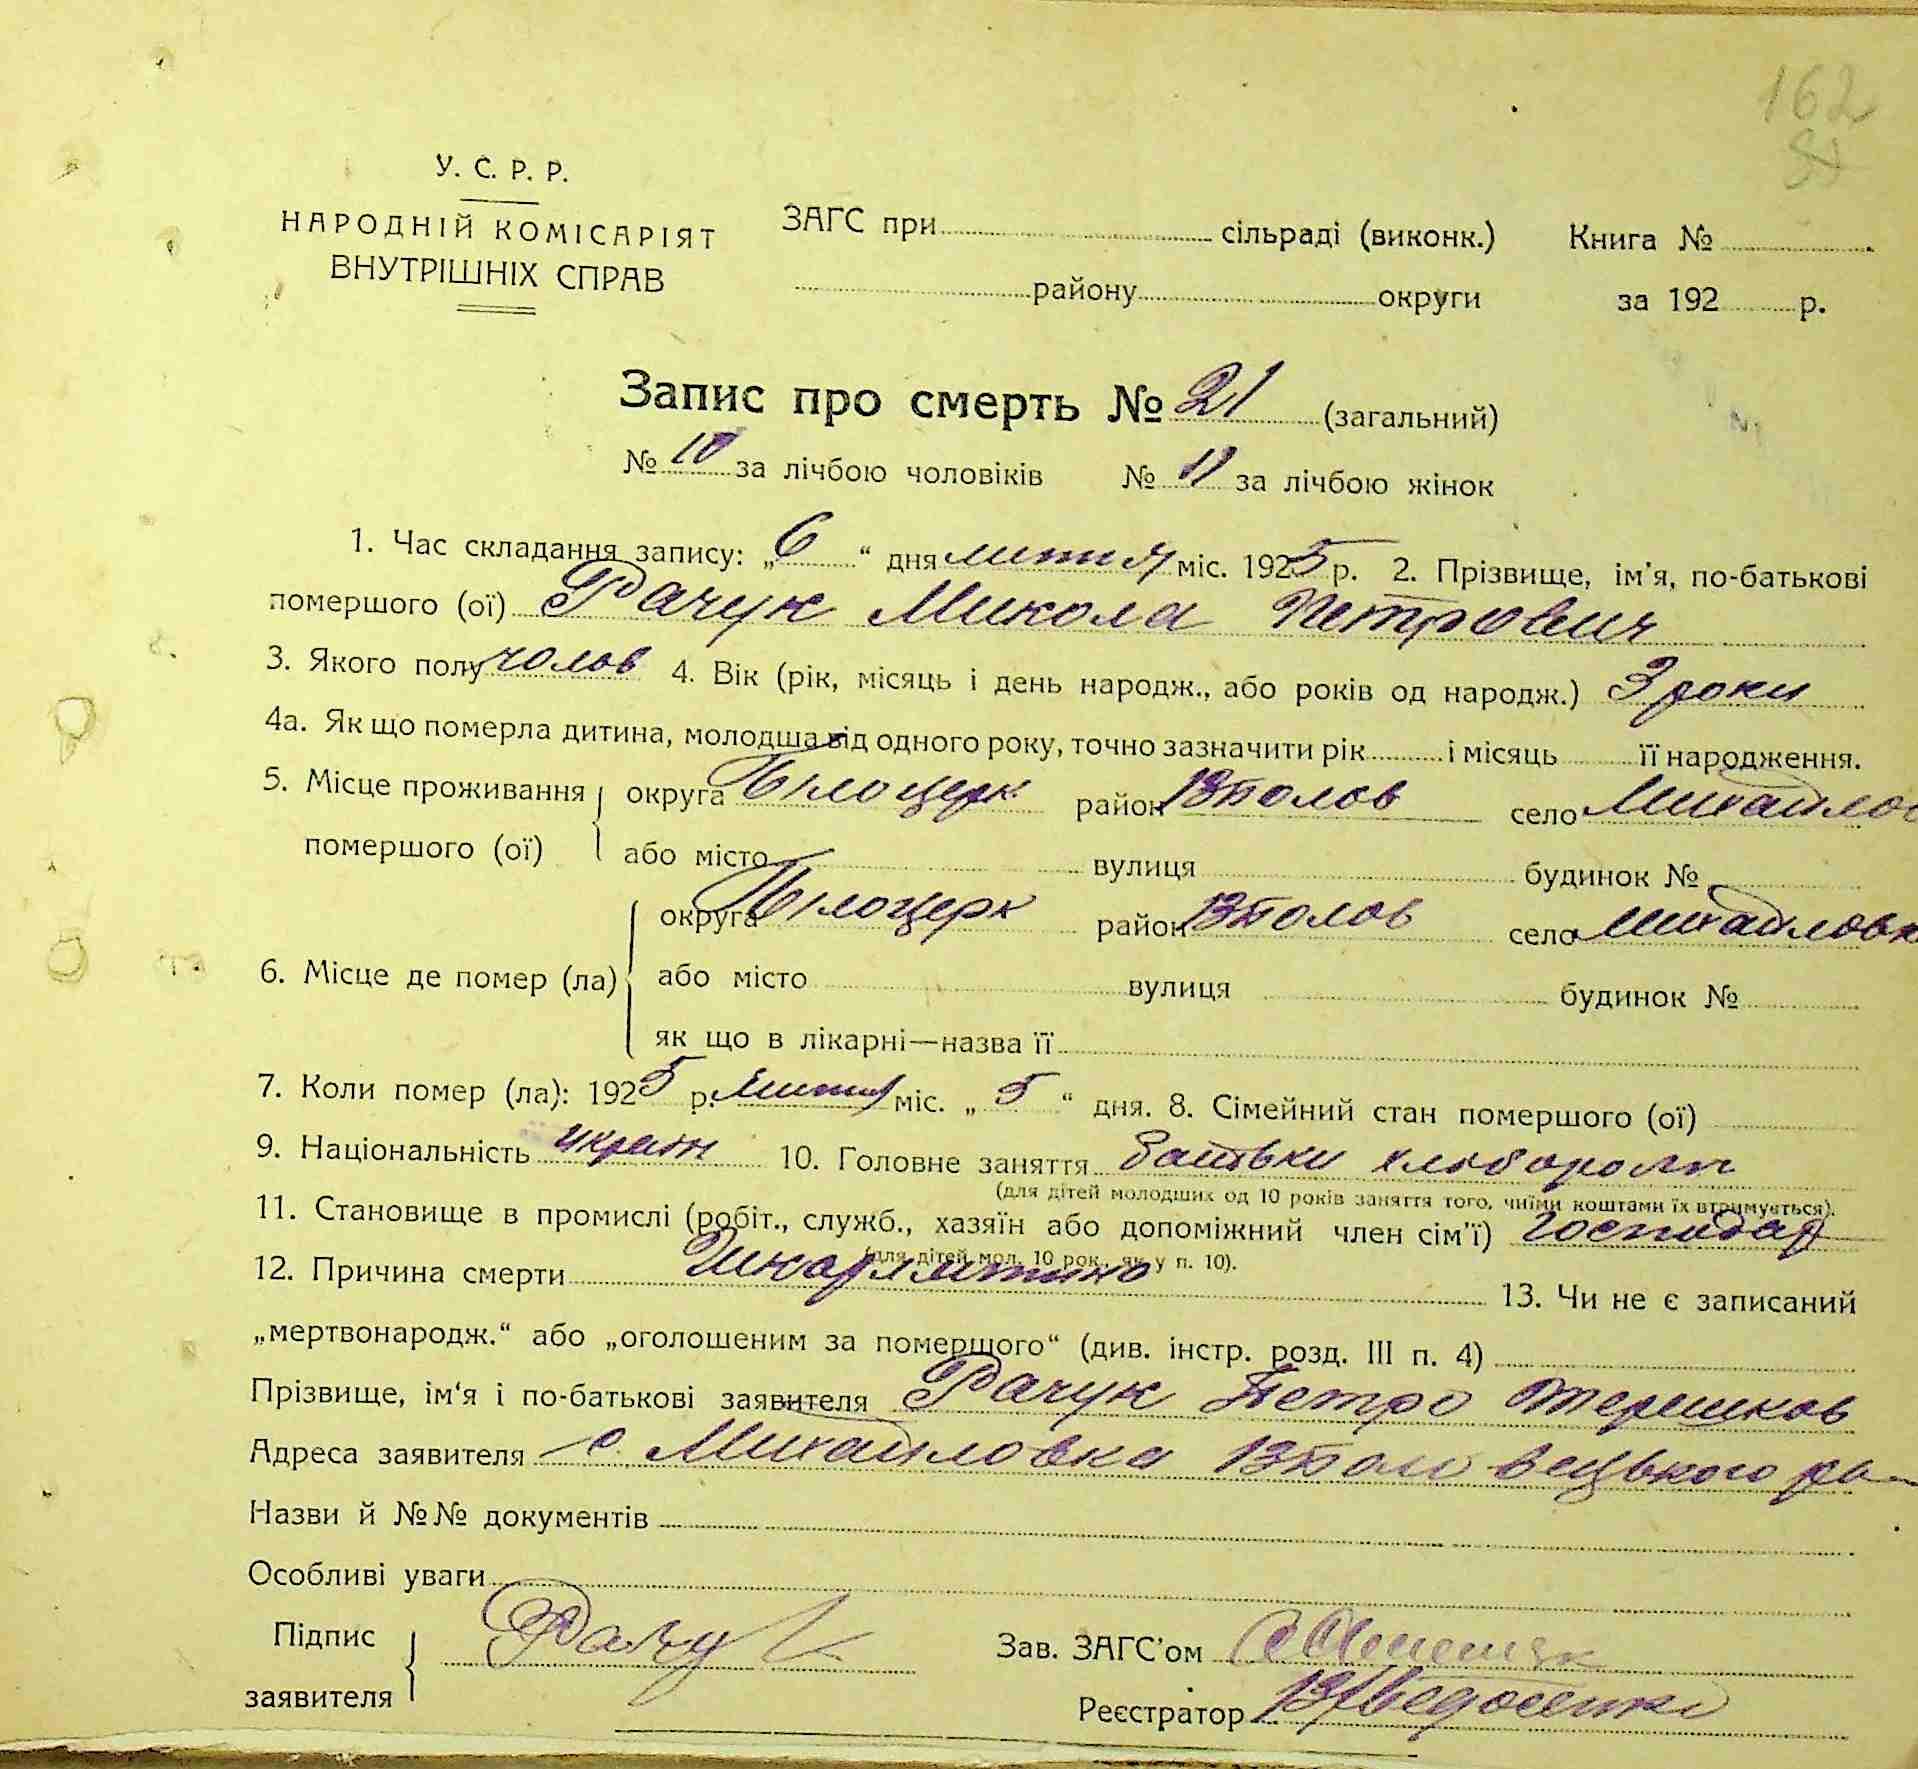 162
У. С. Р. Р.
НАРОДНІЙ КОМІСАРІЯТ
ВНУТРІШНІХ СПРАВ
ЗАГС при сільраді (виконк.) Книга №
району округи за 192 р.
Запис про смерть № 21 (загальний)
№ 10 за лічбою чоловіків № 11 за лічбою жінок
1. Час складання запису: „6“ дня міс. 1925 р. 2. Прізвище, ім'я, по-батькові
помершого (ої) Рачук Микола Петрович
3. Якого полу чолов 4. Вік (рік, місяць і день народж., або років од народж.) 3 роки
4а. Як що померла дитина, молодша від одного року, точно зазначити рік і місяць її народження.
5. Місце проживання округа Білоцерк район село Михайлов
помершого (ої) або місто вулиця будинок №
округа Білоцерк район село Михайловк
6. Місце де помер (ла) або місто вулиця будинок №
як що в лікарні—назва її
7. Коли помер (ла): 1925 р. міс. „5“ дня. 8. Сімейний стан помершого (ої)
9. Національність 10. Головне заняття батьки хлібороби
(для дітей молодших од 10 років заняття того, чиїми коштами їх втримується).
11. Становище в промислі (робіт., служб., хазяїн або допоміжний член сім'ї) господар
(для дітей мол. 10 рок., як у п. 10).
12. Причина смерти Шкарлятина 13. Чи не є записаний
„мертвонародж.“ або „оголошеним за помершого“ (див. інстр. розд. III п. 4)
Прізвище, ім'я і по-батькові заявителя Рачук Петро Терешков
Адреса заявителя с. Михайловка
Назви й №№ документів
Особливі уваги
Підпис заявителя Рачук
Зав. ЗАГС'ом
Реєстратор